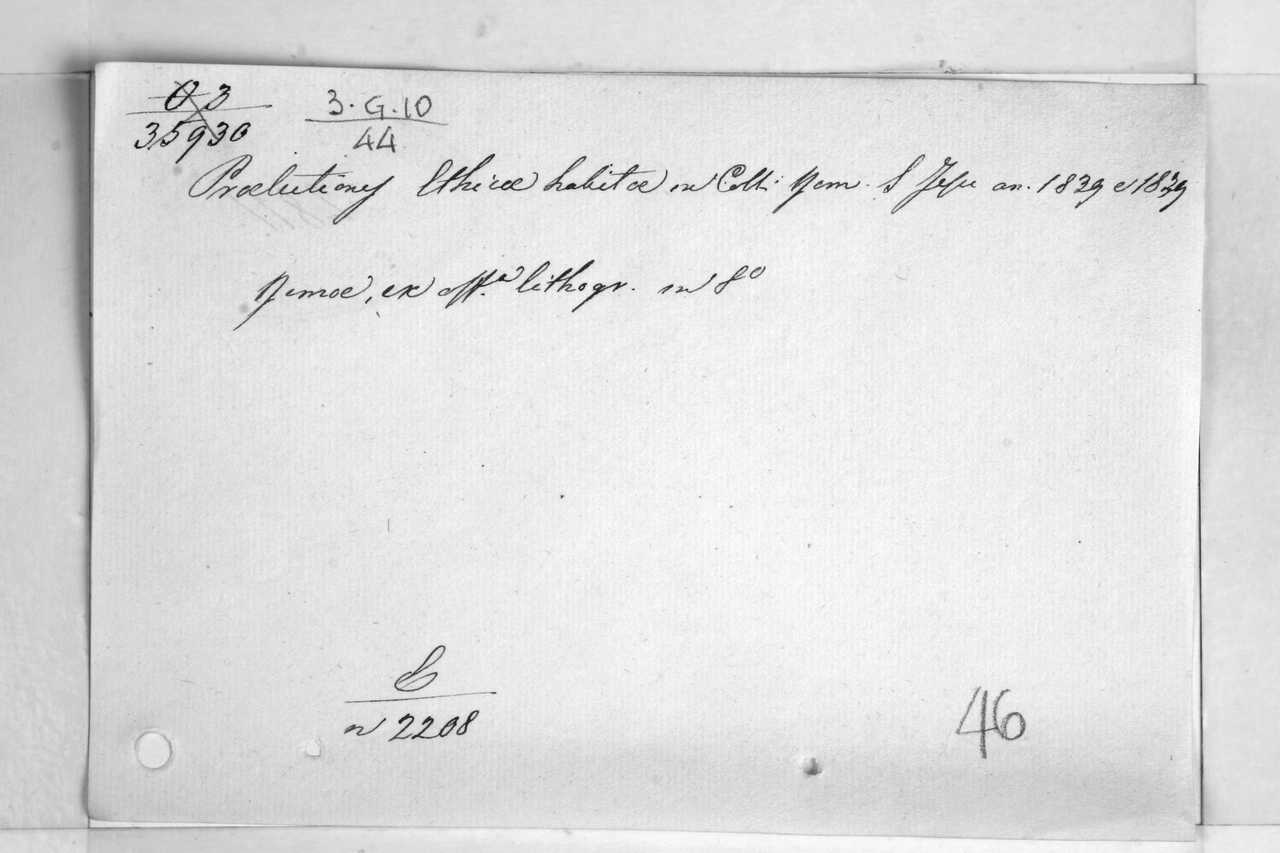 O 3
35930
3. G. 10
44
Prælectiones Ethicæ habitæ in Coll: Rom. S Jesu an. 1839 e 1839
Romæ, ex off.a lithogr. in 8º
C
n 2208
46